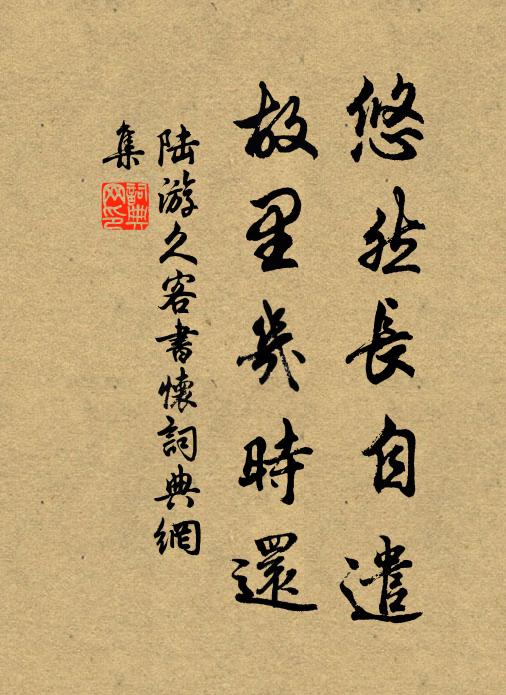 悠然長自遣
故里幾時還
陸游久客書懷詞典網
集
詞典網印